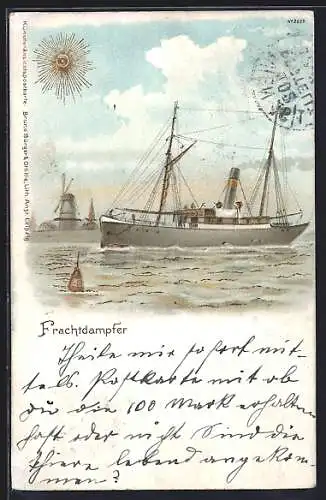 Nº 2629
Künstler-Ansichtspostkarte. Bruno Bürger & Ottillie, Lith. Anst. Leipzig
Frachtdampfer
Theile mir sofort mit-
tels. Postkarte mit ob
du die 100 Mark erhalten
hast oder nicht Sind die
Thiere lebend angekom-
men?